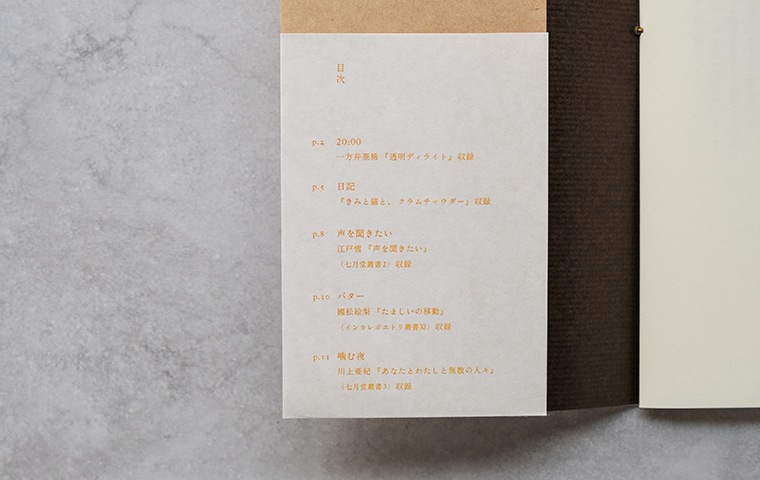 目次
p.2 20:00
一方井亜稀『透明ディライト』収録
p.5 日記
『きみと猫と、クラムチャウダー』収録
p.8 声を聞きたい
江戸雪『声を聞きたい』
（七月堂叢書2）収録
p.10 バター
國松絵梨『たましいの移動』
（インカレポエトリ叢書XI）収録
p.11 噛む夜
川上亜紀『あなたとわたしと無数の人々』
（七月堂叢書3）収録